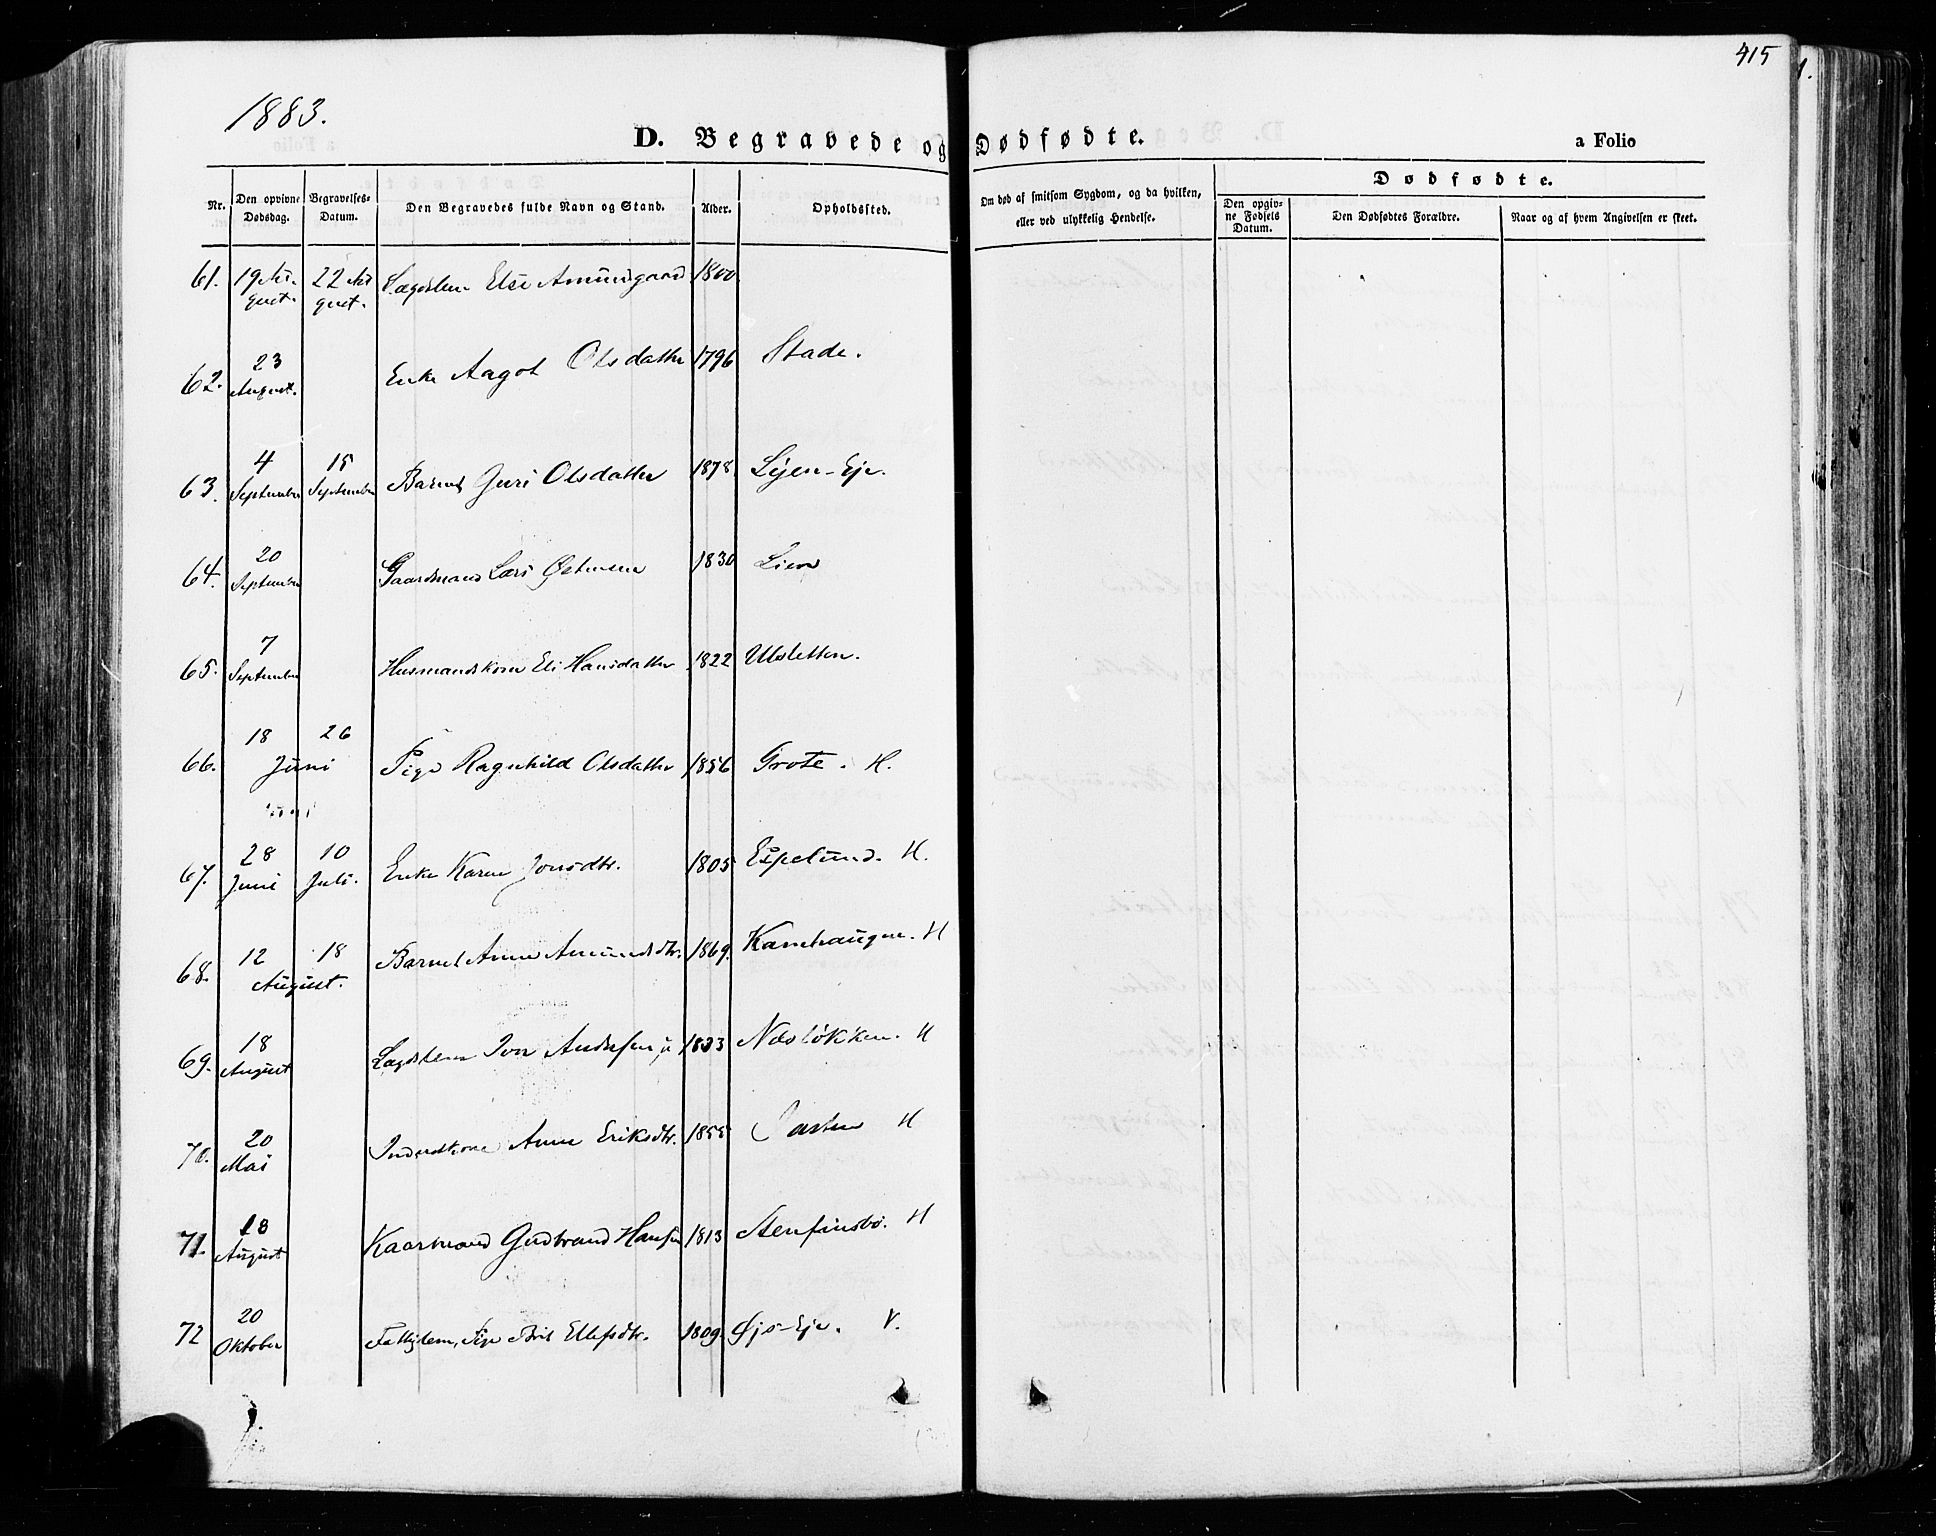 415
1883.
D. Begravede og Dødfødte.
a Folio
Nr.
Den opgivne Dødsdag.
Begravelses-Datum.
Den Begravedes fulde Navn og Stand.
Alder.
Opholdssted.
Om død af smitsom Sygdom, og da hvilken, eller ved ulykkelig Hendelse.
Dødfødte.
Den opgivne Fødsels Datum.
Den Dødfødtes Forældre.
Naar og af hvem Angivelsen er skeet.
61. 19 August. 22 August. Lægdslem Else Amundgaard 1800.
62. 23 August. Enke Aagot Olsdatter 1796 Stade.
63. 4 September 15 September Barnet Guri Olsdatter 1878. Lyen-Eje.
64. 20 September Gaardmand Lars 1830 Lien
65. 7 September Husmandskone Eli Hansdatter 1822 Ulsletten.
66. 18 26 Juni Pige Ragnhild Olsdatter 1856 Grote. H.
67. 28 Juni 10 Juli. Enke Karen Jonsdtr. 1805 Espelund. H.
68. 12 18 August. Barnet Anne Amundsdtr. 1869. H
69. 18 August Lægdslem Jon Andersen 1833 Nesløkken. H
70. 20 Mai Anne Eriksdtr. 1855 H
71. 18 August Kaarmand Gudbrand Hansen 1813 Stenfinsbø. H
72 20 Oktober Fattiglem, Pige Brit Ellefsdtr. 1809. Øjs-Eje. V.